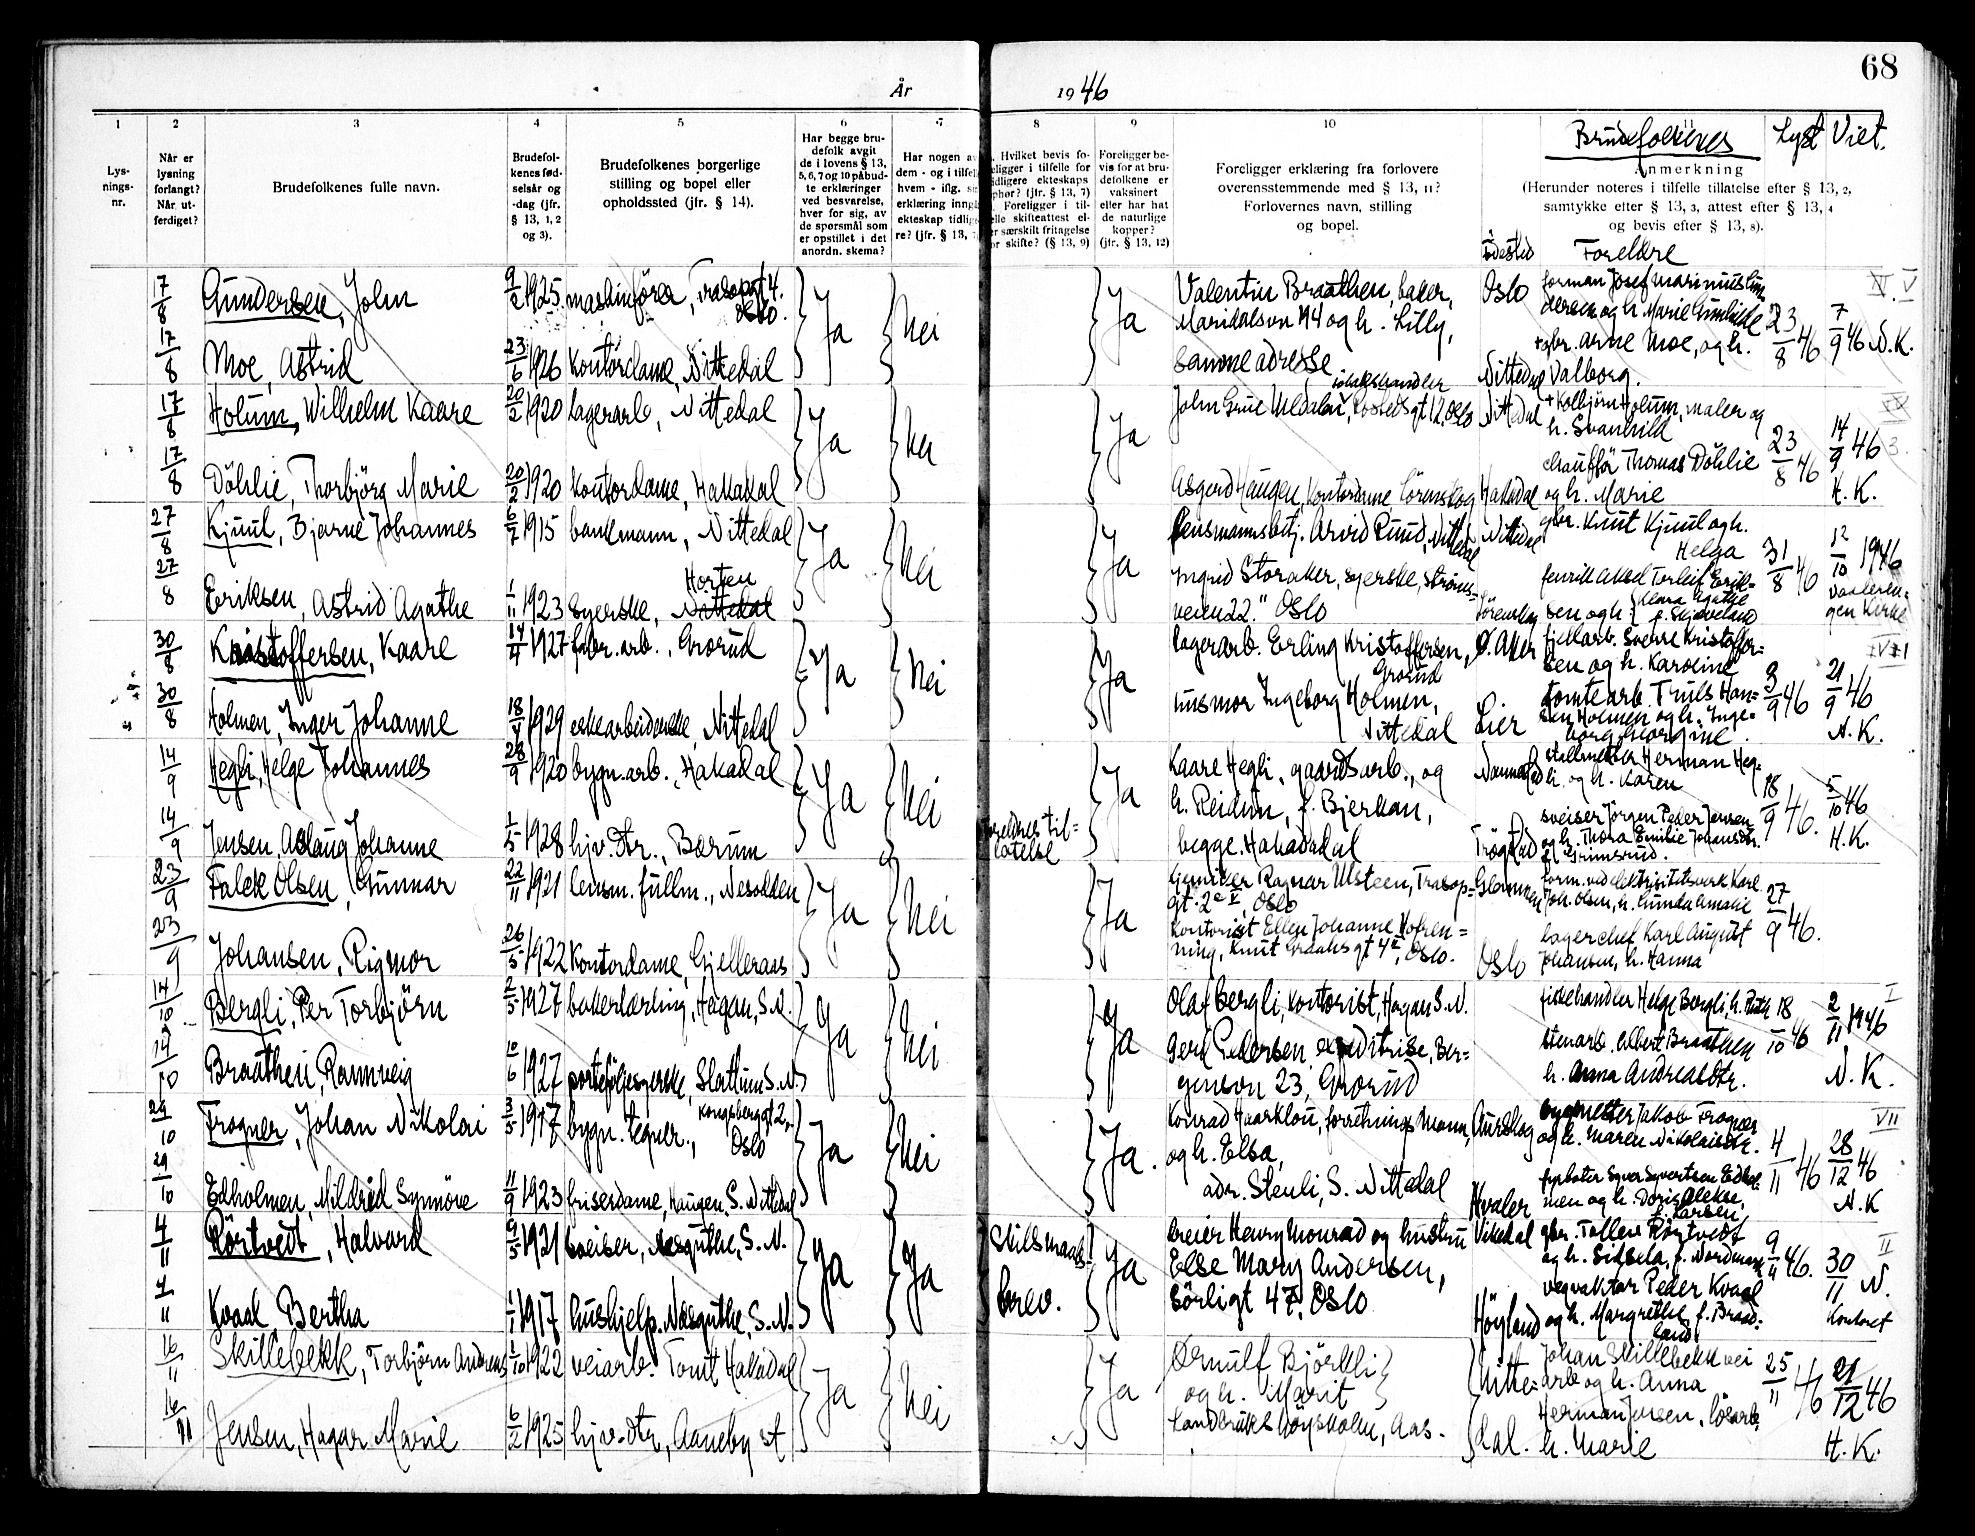 68
År 1946
1 2 3 4 5 6 7 8 9 10 11
Brudefolkenes Lyst Viet.
Lys-
nings-
nr.
Når er
lysning
forlangt?
Når ut-
ferdiget?
Brudefolkenes fulle navn.
Brudefol-
kenes fød-
selsår og
-dag (jfr.
§ 13, 1, 2
og 3).
Brudefolkenes borgerlige
stilling og bopel eller
opholdssted (jfr. § 14).
Har begge bru-
defolk avgit
de i lovens § 13,
5, 6, 7 og 10 påbud-
te erklæringer
ved besvarelse,
hver for sig, av
de spørsmål som
er opstillet i det
anordn. skema?
Har nogen av
dem - og i tilfelle
hvem - iflg. si
erklæring inngå
ekteskap tidlige
re? (jfr. § 13,
. Hvilket bevis fo-
eligger i tilfelle for
idligere ekteskaps
phør? (jfr. § 13, 7)
. Foreligger i til-
elle skifteattest el-
r særskilt fritagelse
or skifte? (§ 13, 9)
Foreligger be-
vis for at bru-
defolkene er
vaksinert
eller har hat
de naturlige
kopper?
(jfr. § 13, 12)
Foreligger erklæring fra forlovere
overensstemmende med § 13, 11?
Forlovernes navn, stilling
og bopel.
Anmerkning
(Herunder noteres i tilfelle tillatelse efter § 13, 2,
samtykke efter § 13, 3, attest efter § 13, 4
og bevis efter § 13, 8).
Fødested Foreldre
17/8 Gundersen, John 9/2 1925. maskinfører, Trasopgt 4. Oslo. Ja Nei Ja Valentin Braathen, baker, Oslo forman Josef Marinius Gun-
Maridalsvn 194 og h. Lilly, dersen og h. Marie 23/8 46 7/9 46 N.K. V
17/8 Moe, Astrid 23/6 1926 Kontordame, Nittedal samme adresse Nittedal gbr. Arne Moe, og h.
Valborg.
17/8 Holum, Wilhelm Kaare 20/2 1920 lagerarb, Nittedal Ja Nei Ja John Grue, Oslo Nittedal + Kolbjørn Holum, maler og
h. Svanhild 23/8 46 14/9 46 H.K.
17/8 Döhlie, Thorbjörg Marie 20/2 1920 kontordame, Hakadal Asgerd Haugen, kontordame, Lörenskog Hakadal chaufför Thomas Döhlie
og h. Marie
27/8 Kjuul, Bjarne Johannes 6/7 1915 bankmann, Nittedal Ja Nei Ja lensmannsbetj. Arvid Ruud, Nittedal Nittedal gbr. Knut Kjuul og h.
Helga 31/8 46 12/10 1946
27/8 Eriksen, Astrid Agathe 1/11 1923 syerske, Horten Ingrid Storaker, syerske, Ströms-
veien 22." Oslo Lörenskog fenrik Aksel Torleif Erik-
sen og h. Klara Agathe
f. Skjæveland Vaaleren-
gen Kirke
30/8 Kristoffersen, Kaare 14/4 1927 fabr. arb., Grorud Ja Nei Ja lagerarb. Erling Kristoffersen, Grorud Ø. Aker fjellarb. Sverre Kristoffer-
sen og h. Karoline 3/9 46 21/9 46 N.K.
30/8 Holmen, Inger Johanne 18/4 1929 eskearbeiderske, Nittedal husmor Ingeborg Holmen,
Nittedal Lier tomtearb. Truls Han-
sen Holmen og h. Inge-
borg Georgine.
14/9 Hegli, Helge Johannes 28/9 1920 bygn.arb., Hakadal Ja Nei Ja Kaare Hegli, gaardsarb., og Nannestad Herman Heg-
li og h. Karen 18/9 46. 5/10 46 H.K.
h. Reidun, f. Bjerkan,
14/9 Jensen, Aslaug Johanne 1/5 1928 hjv. dtr., Bærum foreldres til-
latelse begge Hakadal Trøgstad sveiser Jørgen Peder Jensen
og h. Thora Emilie Johansdtr.
f. Grimsrud.
23/9 Falck Olsen, Gunnar 22/11 1921 lensm. fullm., Nesodden Ja Nei Ja Ragnar Ulsteen, Trasop-
gt. 2, Oslo Glemmen form. ved elektrisitetsverk Karl
Joh. Olsen, h. Gunda Amalie 27/9 46.
23/9 Johansen, Rigmor 26/5 1922 Kontordame, Gjelleraas kontorist Ellen Johanne
Knut Graahs gt 4, Oslo. Oslo lagerchef Karl August
Johansen, h. Hanna
14/10 Bergli, Per Torbjörn 2/5 1927 bakerlærling, Hagan, S.N. Ja Nei Ja Olaf Bergli, kontorist, Hagan S.N. fiskehandler Helge Bergli, h. Ruth 18/10 46 2/11 1946 N.K. I
14/10 Braathen, Rannveig 10/6 1927 porteføljesyerske, Slattum S.N. Gerd Pedersen, expeditrise, Ber-
gensvn 23, Grorud stenarb. Albert Braathen
h. Anna Andreasdtr.
29/10 Frogner, Johan Nikolai 3/5 1917 bygn. tegner., Kongsberggt 2, Oslo Ja Nei Ja. Konrad Haarklou, forretnings mann, Aurskog byggmester Jakob Frogner
og h. Maren Nikolaisdtr. 4/11 46 28/12 46 N.K VII
og h. Elsa,
29/10 Edholmen, Mildrid Synnöve 11/9 1923 friserdame, Haugen, S. Nittedal adr. Stenli, S. Nittedal Hvaler fyrbøter Syver Syvertsen Edhol-
men og h.
f. Larsen.
4/11 Rörtvedt, Halvard 9/5 1921 sveiser, Næsguthe, S.N. Ja Ja Skilsmaals-
brev. Ja Henry Monrad og hustru Vikedal gbr. Tollev Rørtvedt
og h. Sidsela, f. Nordmark 9/11 46. 30/11 N. Kontoret II
Else Mary Andersen,
4/11 Kvaal Bertha 1/1 1917 hushjelp. Næsguthe, S.N. Sörligt 47, Oslo Höyland vegvaktar Peder Kvaal
og h. Margrethe, f. Braad-
land.
16/11 Skillebekk, Torbjörn Andreas 1/10 1922 veiarb. Tomt Hakadal Ja Nei Ja Ørnulf Björkli
og h. Marit Nitte-
dal. Johan Skillebekk vei
arb og h. Anna 25/11 46 21/12 46 H.K.
16/11 Jensen, Hagar Marie 6/2 1925 hjv.dtr, Aaneby st Landbruks Höyskolen, Aas. Herman Jensen, løsarb.
h. Marie